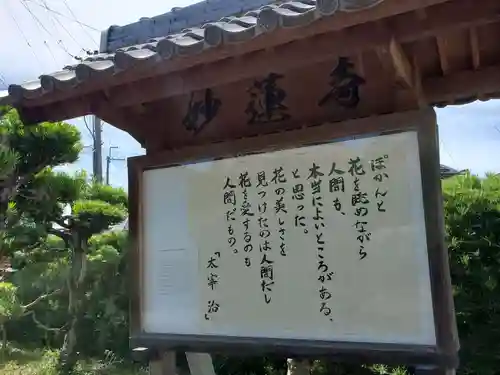 妙蓮寺
ぽかんと
花を眺めながら
人間も、
本当によいところがある、
と思った。
花の美しさを
見つけたのは人間だし
花を愛するのも
人間だもの。
「太宰 治」